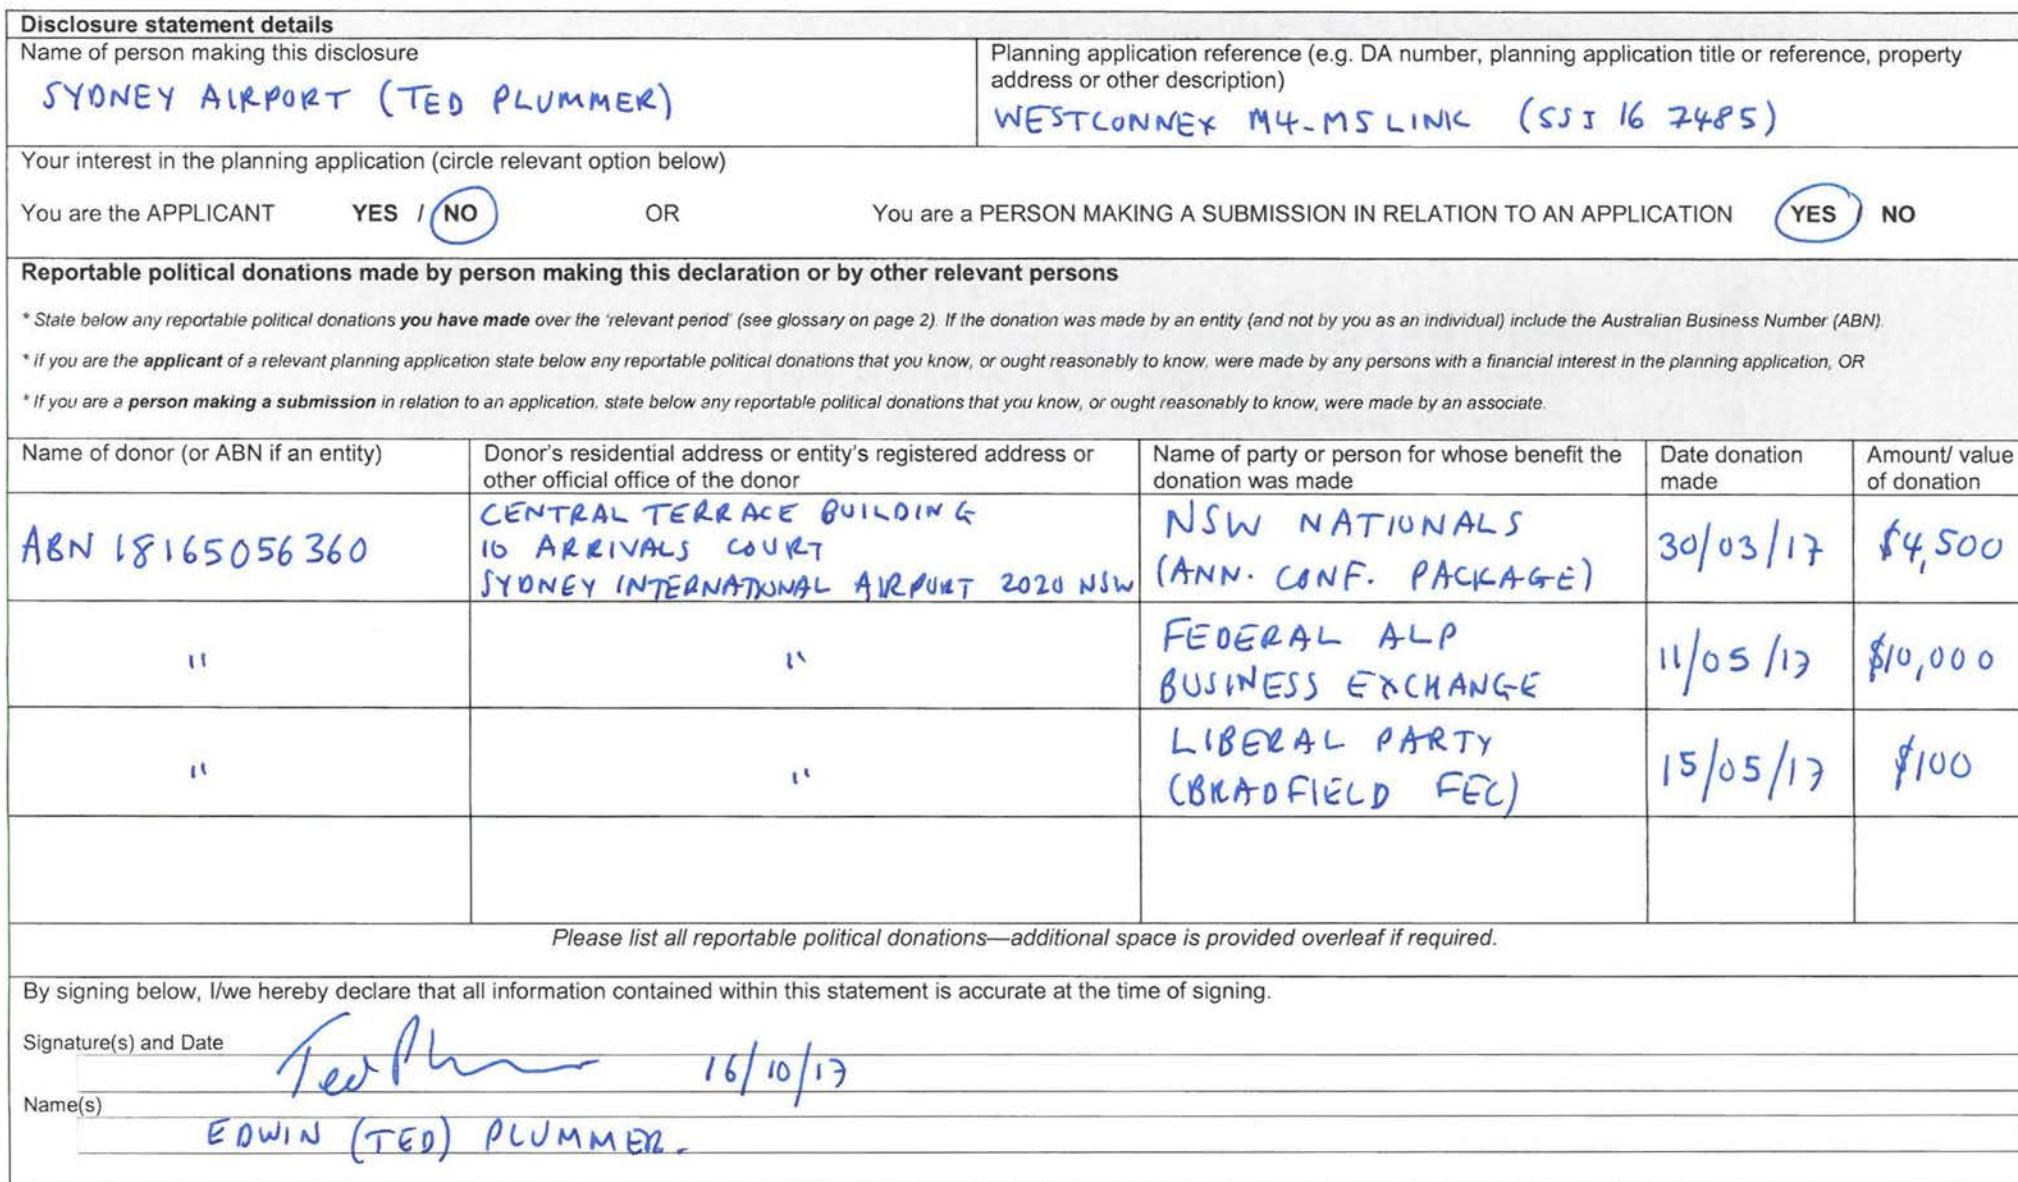 Disclosure statement details
Name of person making this disclosure
SYDNEY AIRPORT (TED PLUMMER)
Planning application reference (e.g. DA number, planning application title or reference, property
address or other description)
WESTCONNEX M4-M5 LINK (SSI 16 7485)
Your interest in the planning application (circle relevant option below)
You are the APPLICANT YES / NO OR You are a PERSON MAKING A SUBMISSION IN RELATION TO AN APPLICATION YES / NO
Reportable political donations made by person making this declaration or by other relevant persons
* State below any reportable political donations you have made over the 'relevant period' (see glossary on page 2). If the donation was made by an entity (and not by you as an individual) include the Australian Business Number (ABN).
* If you are the applicant of a relevant planning application state below any reportable political donations that you know, or ought reasonably to know, were made by any persons with a financial interest in the planning application, OR
* If you are a person making a submission in relation to an application, state below any reportable political donations that you know, or ought reasonably to know, were made by an associate.
Name of donor (or ABN if an entity)
Donor's residential address or entity's registered address or
other official office of the donor
Name of party or person for whose benefit the
donation was made
Date donation
made
Amount/ value
of donation
ABN 18165056360
CENTRAL TERRACE BUILDING
10 ARRIVALS COURT
SYDNEY INTERNATIONAL AIRPORT 2020 NSW
NSW NATIONALS
(ANN. CONF. PACKAGE)
30/03/17
$4,500
"
"
FEDERAL ALP
BUSINESS EXCHANGE
11/05/17
$10,000
"
"
LIBERAL PARTY
(BRADFIELD FEC)
15/05/17
$100
Please list all reportable political donations—additional space is provided overleaf if required.
By signing below, I/we hereby declare that all information contained within this statement is accurate at the time of signing.
Signature(s) and Date
Ted Pl 16/10/17
Name(s)
EDWIN (TED) PLUMMER.